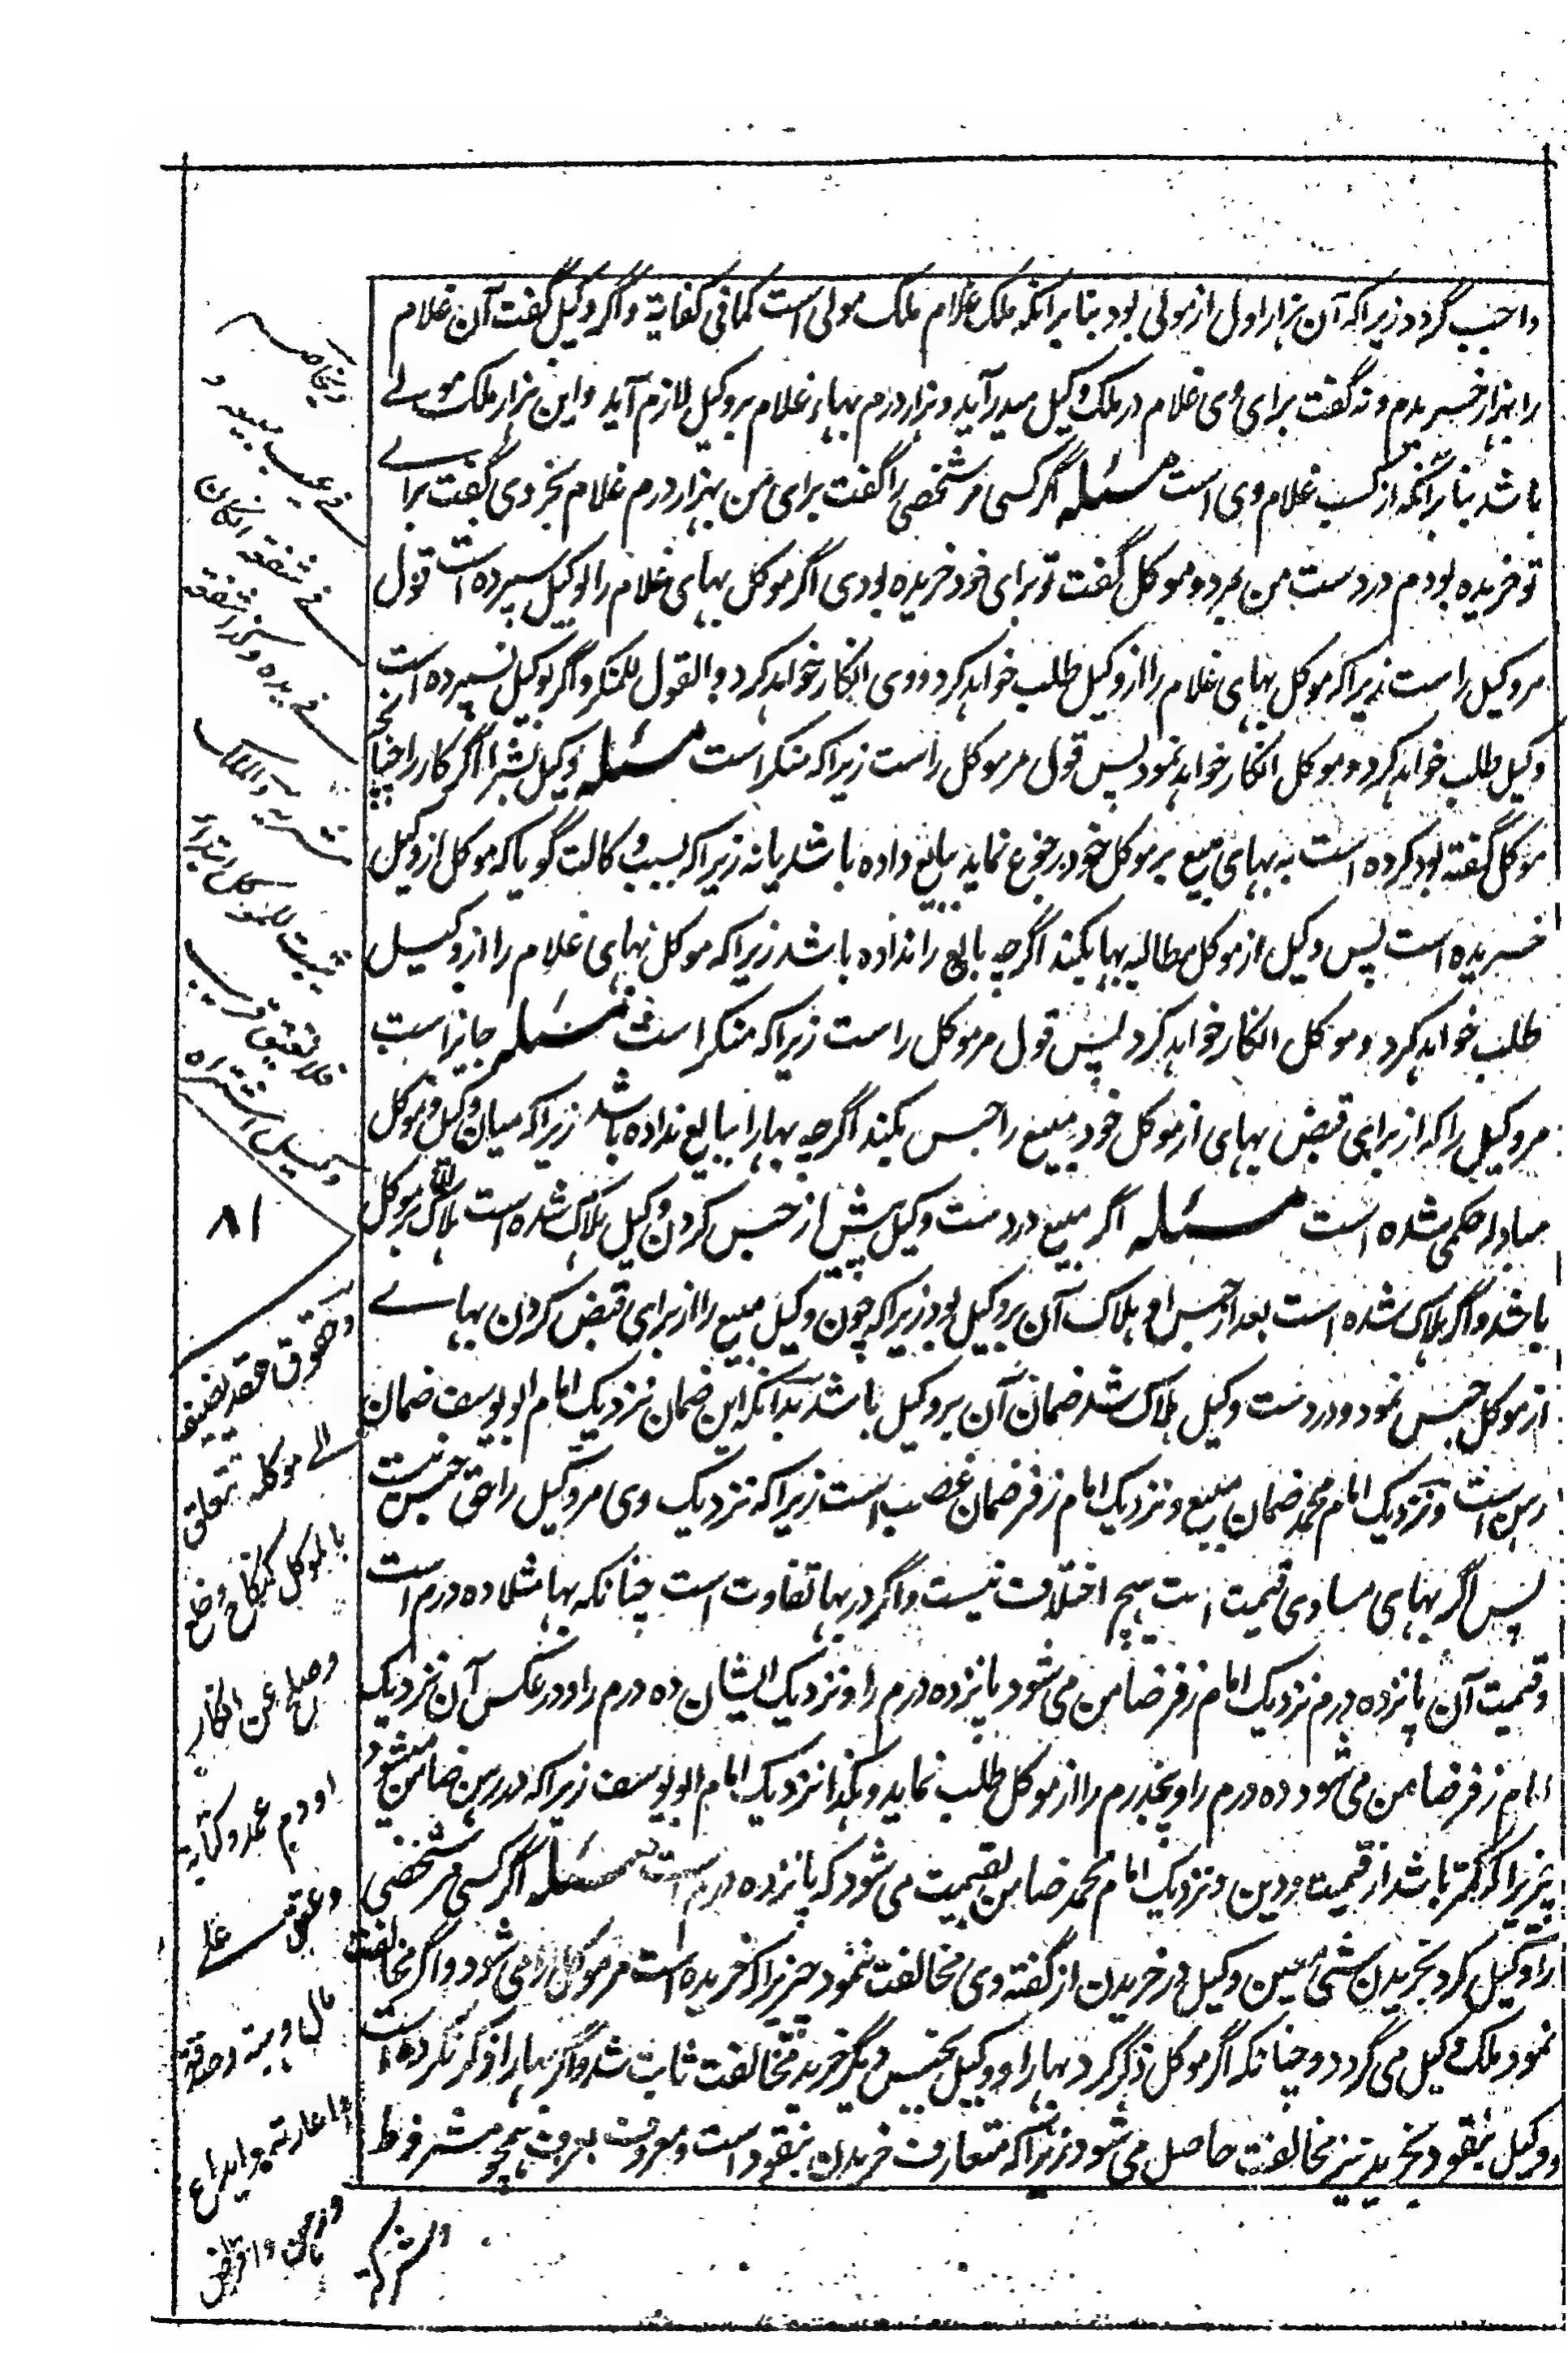 واجب گردد زیراکه آن هزار اول از مولی بود بنا برانکه ملک غلام ملک مولی است کما فی کفایة و اگر وکیل گفت آن غلام
را بهزار خریدم و نه گفت برای وی غلام در ملک وکیل میدرآید و هزار درم بهاء غلام بر وکیل لازم آید و این هزار ملک مولے
باشد بنا برانکه از کسب غلام وی است مسئله اگر کسی مر شخصی را گفت برای من بهزار درم غلام بخر وی گفت براے
تو خریده بودم در دست من بمرد و موکل گفت تو برای خود خریده بودی اگر موکل بهای غلام را بوکیل سپرده است قول
مر وکیل راست زیراکه موکل بهای غلام را از وکیل طلب خواهد کرد و وی انکار خواهد کرد و القول للمنکر و اگر بوکیل نسپرده است
وکیل طلب خواهد کرد و موکل انکار خواهد نمود پس قول مر موکل راست زیراکه منکر است مسئله وکیل بشرا اگر کار را چنانچه
موکل گفته بود کرده است به بهای مبیع بر موکل خود رجوع نماید ببایع داده باشد یا نه زیراکه بسبب وکالت گویا که موکل از وکیل
خریده است پس وکیل از موکل مطالبه بها بکند اگرچه بایع را نداده باشد زیراکه موکل بهای غلام را از وکیل
طلب خواهد کرد و موکل انکار خواهد کرد پس قول مر موکل راست زیراکه منکر است مسئله جایز است
مر وکیل را که از برای قبض بهای از موکل خود مبیع را حبس بکند اگرچه بها را ببایع نداده باشد زیراکه میان وکیل و موکل
مبادله حکمی شده است مسئله اگر مبیع در دست وکیل پیش از حبس کردن وکیل هلاک شده است هلاک بر موکل
باشد و اگر هلاک شده است بعد از حبس او هلاک آن بر وکیل بود زیراکه چون وکیل مبیع را از برای قبض کردن بهاے
از موکل حبس نمود و در دست وکیل هلاک شد ضمان آن بر وکیل باشد بدانکه این ضمان نزدیک امام ابو یوسف ضمان
رهن است و نزدیک امام محمد ضمان مبیع و نزدیک امام زفر ضمان غصب است زیراکه نزدیک وی مر وکیل را حق حبس نیست
پس اگر بهای مساوی قیمت است هیچ اختلاف نیست و اگر در بها تفاوت است چنانکه بها مثلا ده درم است
و قیمت آن پانزده درم نزدیک امام زفر ضامن می شود پانزده درم را و نزدیک ایشان ده درم را و در عکس آن نزدیک
امام زفر ضامن می شود ده درم را و پنجدرم را از موکل طلب نماید و هکذا نزدیک امام ابو یوسف زیراکه در رهن ضامن میشود
چیزیرا که کمتر باشد از قیمت و دین و نزدیک امام محمد ضامن بقیمت می شود که پانزده درم است مسئله اگر کسی مر شخصی
را وکیل کرد بخریدن شئ معین وکیل در خریدن از گفته وی مخالفت ننمود چیزیرا که خریده است مر موکل را می شود و اگر مخالفت
نمود ملک وکیل می گردد و چنانکه اگر موکل ذکر کرد بها را و وکیل بجنس دیگر خرید مخالفت ثابت شد و اگر بها را ذکر نکرده است
و وکیل بنقود بخرید نیز مخالفت حاصل می شود زیراکه متعارف خریدن بنقود است و معروف بعرف همچو مشروط
فے عیب مبیعه و
فے شفعة ان کان
فے یده و کذا شفعة
مشتریه و الملک
یثبت للموکل ابتداء
فلا تعتق قریب
وکیل اشتراه
۸۱
و حقوق عقد یضیفه
الے موکله تتعلق
بالموکل کنکاح و خلع
و صلح عن انکار
او دم عمد و کتابة
و عتق علے
مال و هبة و صدقة
و اعارة و ایداع
و رهن و اقراض
و شرکة